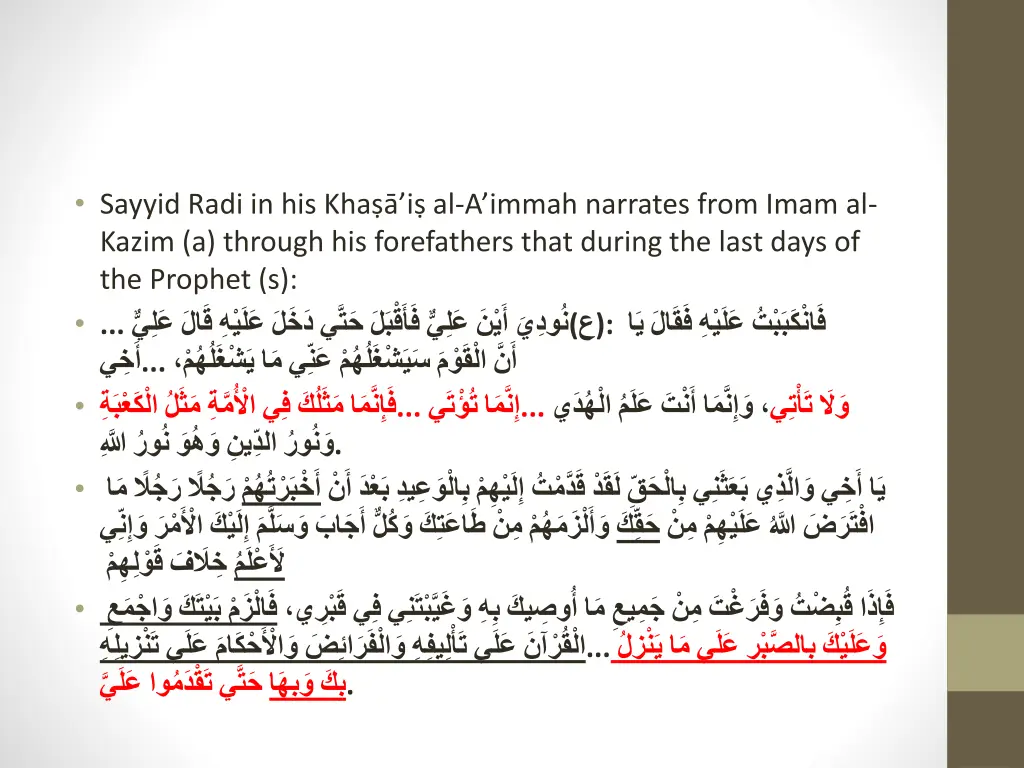 Sayyid Radi in his Khaṣā’iṣ al-A’immah narrates from Imam al-
Kazim (a) through his forefathers that during the last days of
the Prophet (s):
... نُودِيَ أَيْنَ عَلِيٌّ فَأَقْبَلَ حَتَّى دَخَلَ عَلَيْهِ قَالَ عَلِيٌّ (ع): فَانْكَبَبْتُ عَلَيْهِ فَقَالَ يَا
أَخِي ... أَنَّ الْقَوْمَ سَيَشْغَلُهُمْ عَنِّي مَا يَشْغَلُهُمْ،
فَإِنَّمَا مَثَلُكَ فِي الْأُمَّةِ مَثَلُ الْكَعْبَةِ ... إِنَّمَا تُؤْتَى ... وَلَا تَأْتِي، وَإِنَّمَا أَنْتَ عَلَمُ الْهُدَى
وَنُورُ الدِّينِ وَهُوَ نُورُ اللَّهِ.
يَا أَخِي وَالَّذِي بَعَثَنِي بِالْحَقِّ لَقَدْ قَدَّمْتُ إِلَيْهِمْ بِالْوَعِيدِ بَعْدَ أَنْ أَخْبَرْتُهُمْ رَجُلًا رَجُلًا مَا
افْتَرَضَ اللَّهُ عَلَيْهِمْ مِنْ حَقِّكَ وَأَلْزَمَهُمْ مِنْ طَاعَتِكَ وَكُلٌّ أَجَابَ وَسَلَّمَ إِلَيْكَ الْأَمْرَ وَإِنِّي
لَأَعْلَمُ خِلَافَ قَوْلِهِمْ
فَإِذَا قُبِضْتُ وَفَرَغْتَ مِنْ جَمِيعِ مَا أُوصِيكَ بِهِ وَغَيَّبْتَنِي فِي قَبْرِي، فَالْزَمْ بَيْتَكَ وَاجْمَعِ
الْقُرْآنَ عَلَى تَأْلِيفِهِ وَالْفَرَائِضَ وَالْأَحْكَامَ عَلَى تَنْزِيلِهِ ... وَعَلَيْكَ بِالصَّبْرِ عَلَى مَا يَنْزِلُ
بِكَ وَبِهَا حَتَّى تَقْدَمُوا عَلَيَّ.